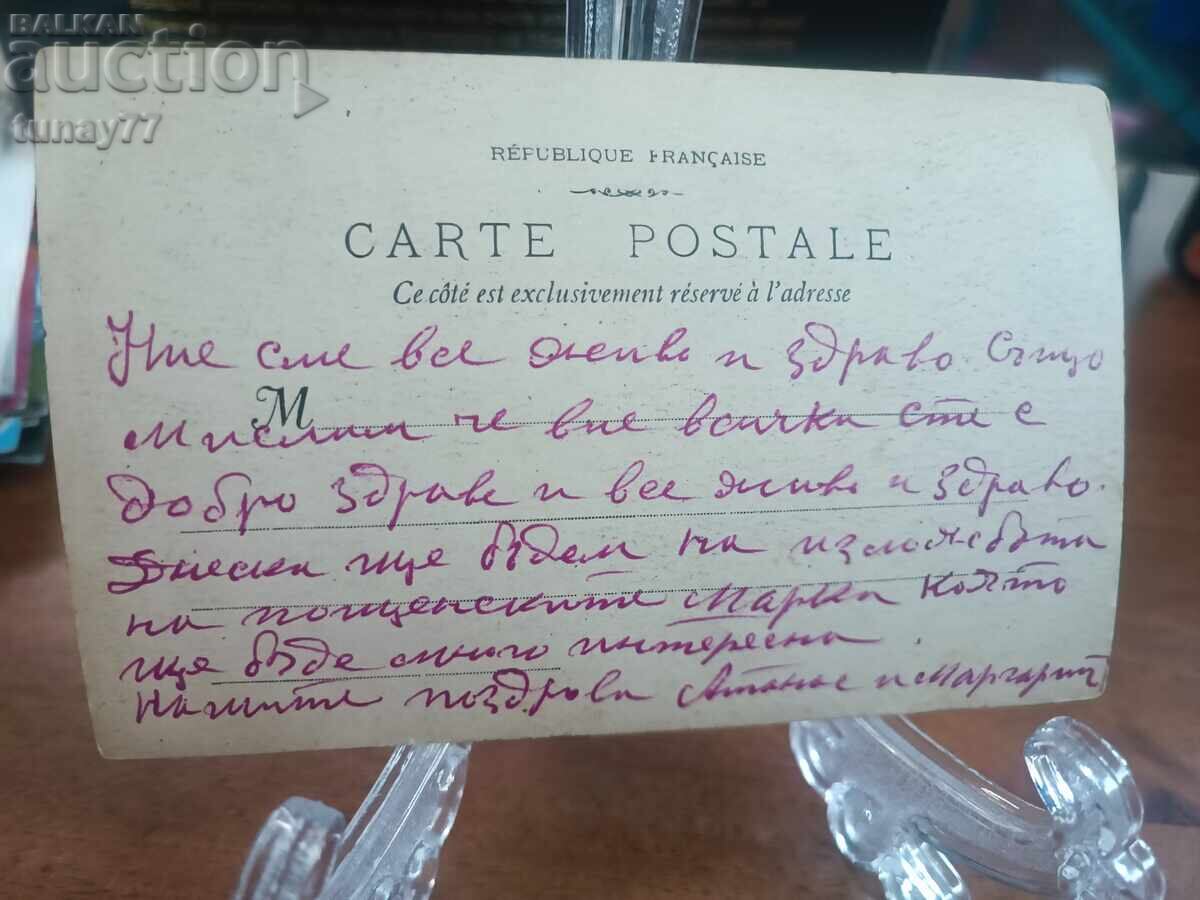 BALKAN
auction
tunay77
RÉPUBLIQUE FRANÇAISE
CARTE POSTALE
Ce côté est exclusivement réservé à l'adresse
Ние сме все живо и здраво. Също
М
мислим че вие всички сте с
добро здраве и все живо и здраво.
Днеска ще бъдем на изложбата
на пощенските марки която
ще бъде много интересна.
Нашите поздрави Атанас и Маргарит